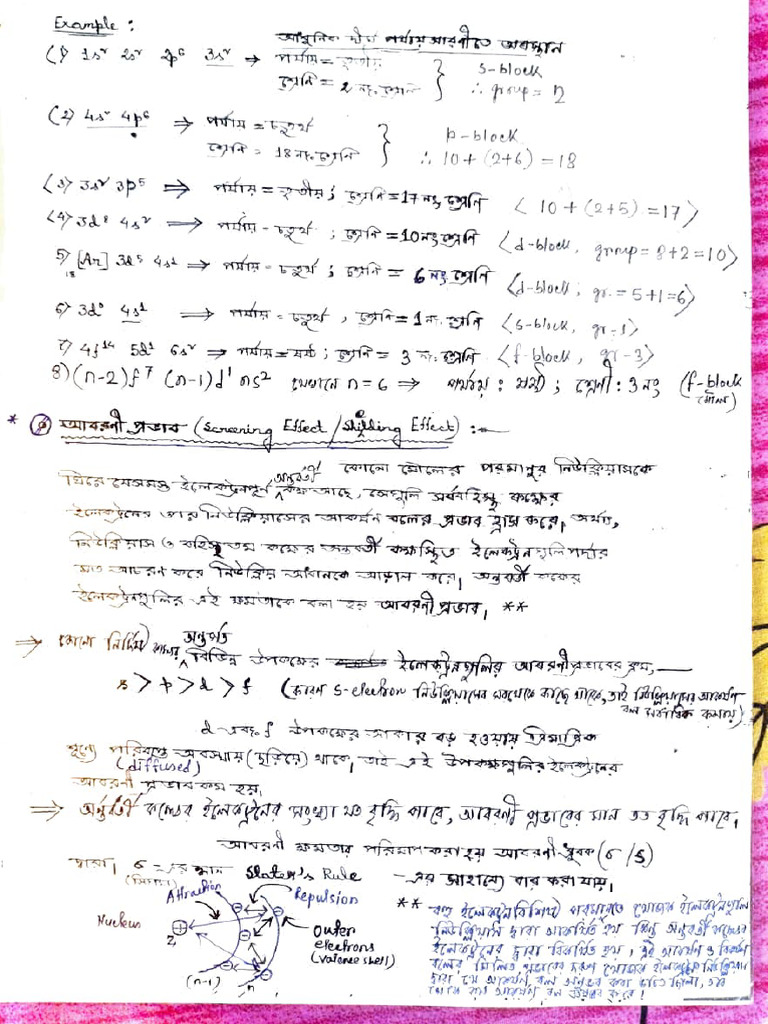 Example :
আধুনিক দীর্ঘ পর্যায় সারণীতে অবস্থান
(1) 1s² 2s² 2p⁶ 3s² ⇒ পর্যায় = তৃতীয় } s-block
শ্রেণি = 2 নং শ্রেণি ∴ group = 2
(2) 4s² 4p⁶ ⇒ পর্যায় = চতুর্থ } p-block
শ্রেণি = 18 নং শ্রেণি ∴ 10 + (2+6) = 18
(3) 3s² 3p⁵ ⇒ পর্যায় = তৃতীয় ; শ্রেণি = 17 নং শ্রেণি < 10 + (2+5) = 17 >
(4) 3d⁸ 4s² ⇒ পর্যায় - চতুর্থ ; শ্রেণি = 10 নং শ্রেণি < d-block, group = 8+2 = 10 >
5) [Ar]₁₈ 3d⁵ 4s¹ ⇒ পর্যায় - চতুর্থ ; শ্রেণি = 6 নং শ্রেণি < d-block ; gr. = 5+1 = 6 >
6) 3d⁰ 4s¹ ⇒ পর্যায় - চতুর্থ , শ্রেণি = 1 নং শ্রেণি < s-block, gr-1 >
7) 4f¹⁴ 5d¹ 6s² ⇒ পর্যায় = ষষ্ঠ ; শ্রেণি = 3 নং শ্রেণি < f-block, gr-3 >
8) (n-2)f⁷ (n-1)d¹ ns² যেখানে n = 6 ⇒ পর্যায় : ষষ্ঠ ; শ্রেণী : 3 নং (f-block মৌল)
* আবরণী প্রভাব (Screening Effect / Shilding Effect) :—
কোনো মৌলের পরমাণুর নিউক্লিয়াসকে
ঘিরে যেসমস্ত ইলেকট্রনপূর্ণ অন্তর্বর্তী কক্ষ আছে, সেগুলি সর্ববহিস্থ কক্ষের
ইলেকট্রনের ওপর নিউক্লিয়াসের আকর্ষণ বলের প্রভাব হ্রাস করে। অর্থাৎ,
নিউক্লিয়াস ও বহিস্থতম কক্ষের অন্তর্বর্তী কক্ষস্থিত ইলেকট্রনগুলি পর্দার
মত আচরণ করে নিউক্লিয় আধানকে আড়াল করে। অন্তর্বর্তী কক্ষের
ইলেকট্রনগুলির এই ক্ষমতাকে বলা হয় আবরণী প্রভাব। **
⇒ কোনো নির্দিষ্ট কক্ষের অন্তর্গত বিভিন্ন উপকক্ষের ইলেকট্রনগুলির আবরণী প্রভাবের ক্রম, —
s > p > d > f (কারণ s-electron নিউক্লিয়াসের সবথেকে কাছে থাকে, তাই নিউক্লিয়াসের আকর্ষণ
বল সর্বাধিক কমায়)
d এবং f উপকক্ষের আকার বড় হওয়ায় ত্রিমাত্রিক
শূন্যে পরিব্যপ্ত অবস্থায় (ছড়িয়ে) থাকে। তাই এই উপকক্ষগুলির ইলেকট্রনের
(diffused)
আবরণী প্রভাব কম হয়।
⇒ অন্তর্বর্তী কক্ষের ইলেকট্রনের সংখ্যা যত বৃদ্ধি পাবে, আবরণী প্রভাবের মান তত বৃদ্ধি পাবে।
আবরণী ক্ষমতার পরিমাপ করা হয় আবরণী ধ্রুবক (σ / S)
দ্বারা। σ -এর মান Slater's Rule -এর সাহায্যে বার করা যায়।
(সিগমা)
Attraction
Repulsion
Nucleus
Z
Outer
electrons
(valence shell)
(n-1)
n
** বহু ইলেকট্রনবিশিষ্ট পরমাণুতে যোজ্যতা ইলেকট্রনগুলি
নিউক্লিয়াস দ্বারা আকর্ষিত হয় কিন্তু অন্তর্বর্তী কক্ষের
ইলেকট্রনের দ্বারা বিকর্ষিত হয়, এই আকর্ষণ ও বিকর্ষণ
বলের মিলিত প্রভাবের দরুণ যোজ্যতা ইলেকট্রনগুলি নিউক্লিয়াস
দ্বারা যে আকর্ষণ বল অনুভব করা উচিত ছিল, তার
থেকে কম আকর্ষণ বল অনুভব করে।